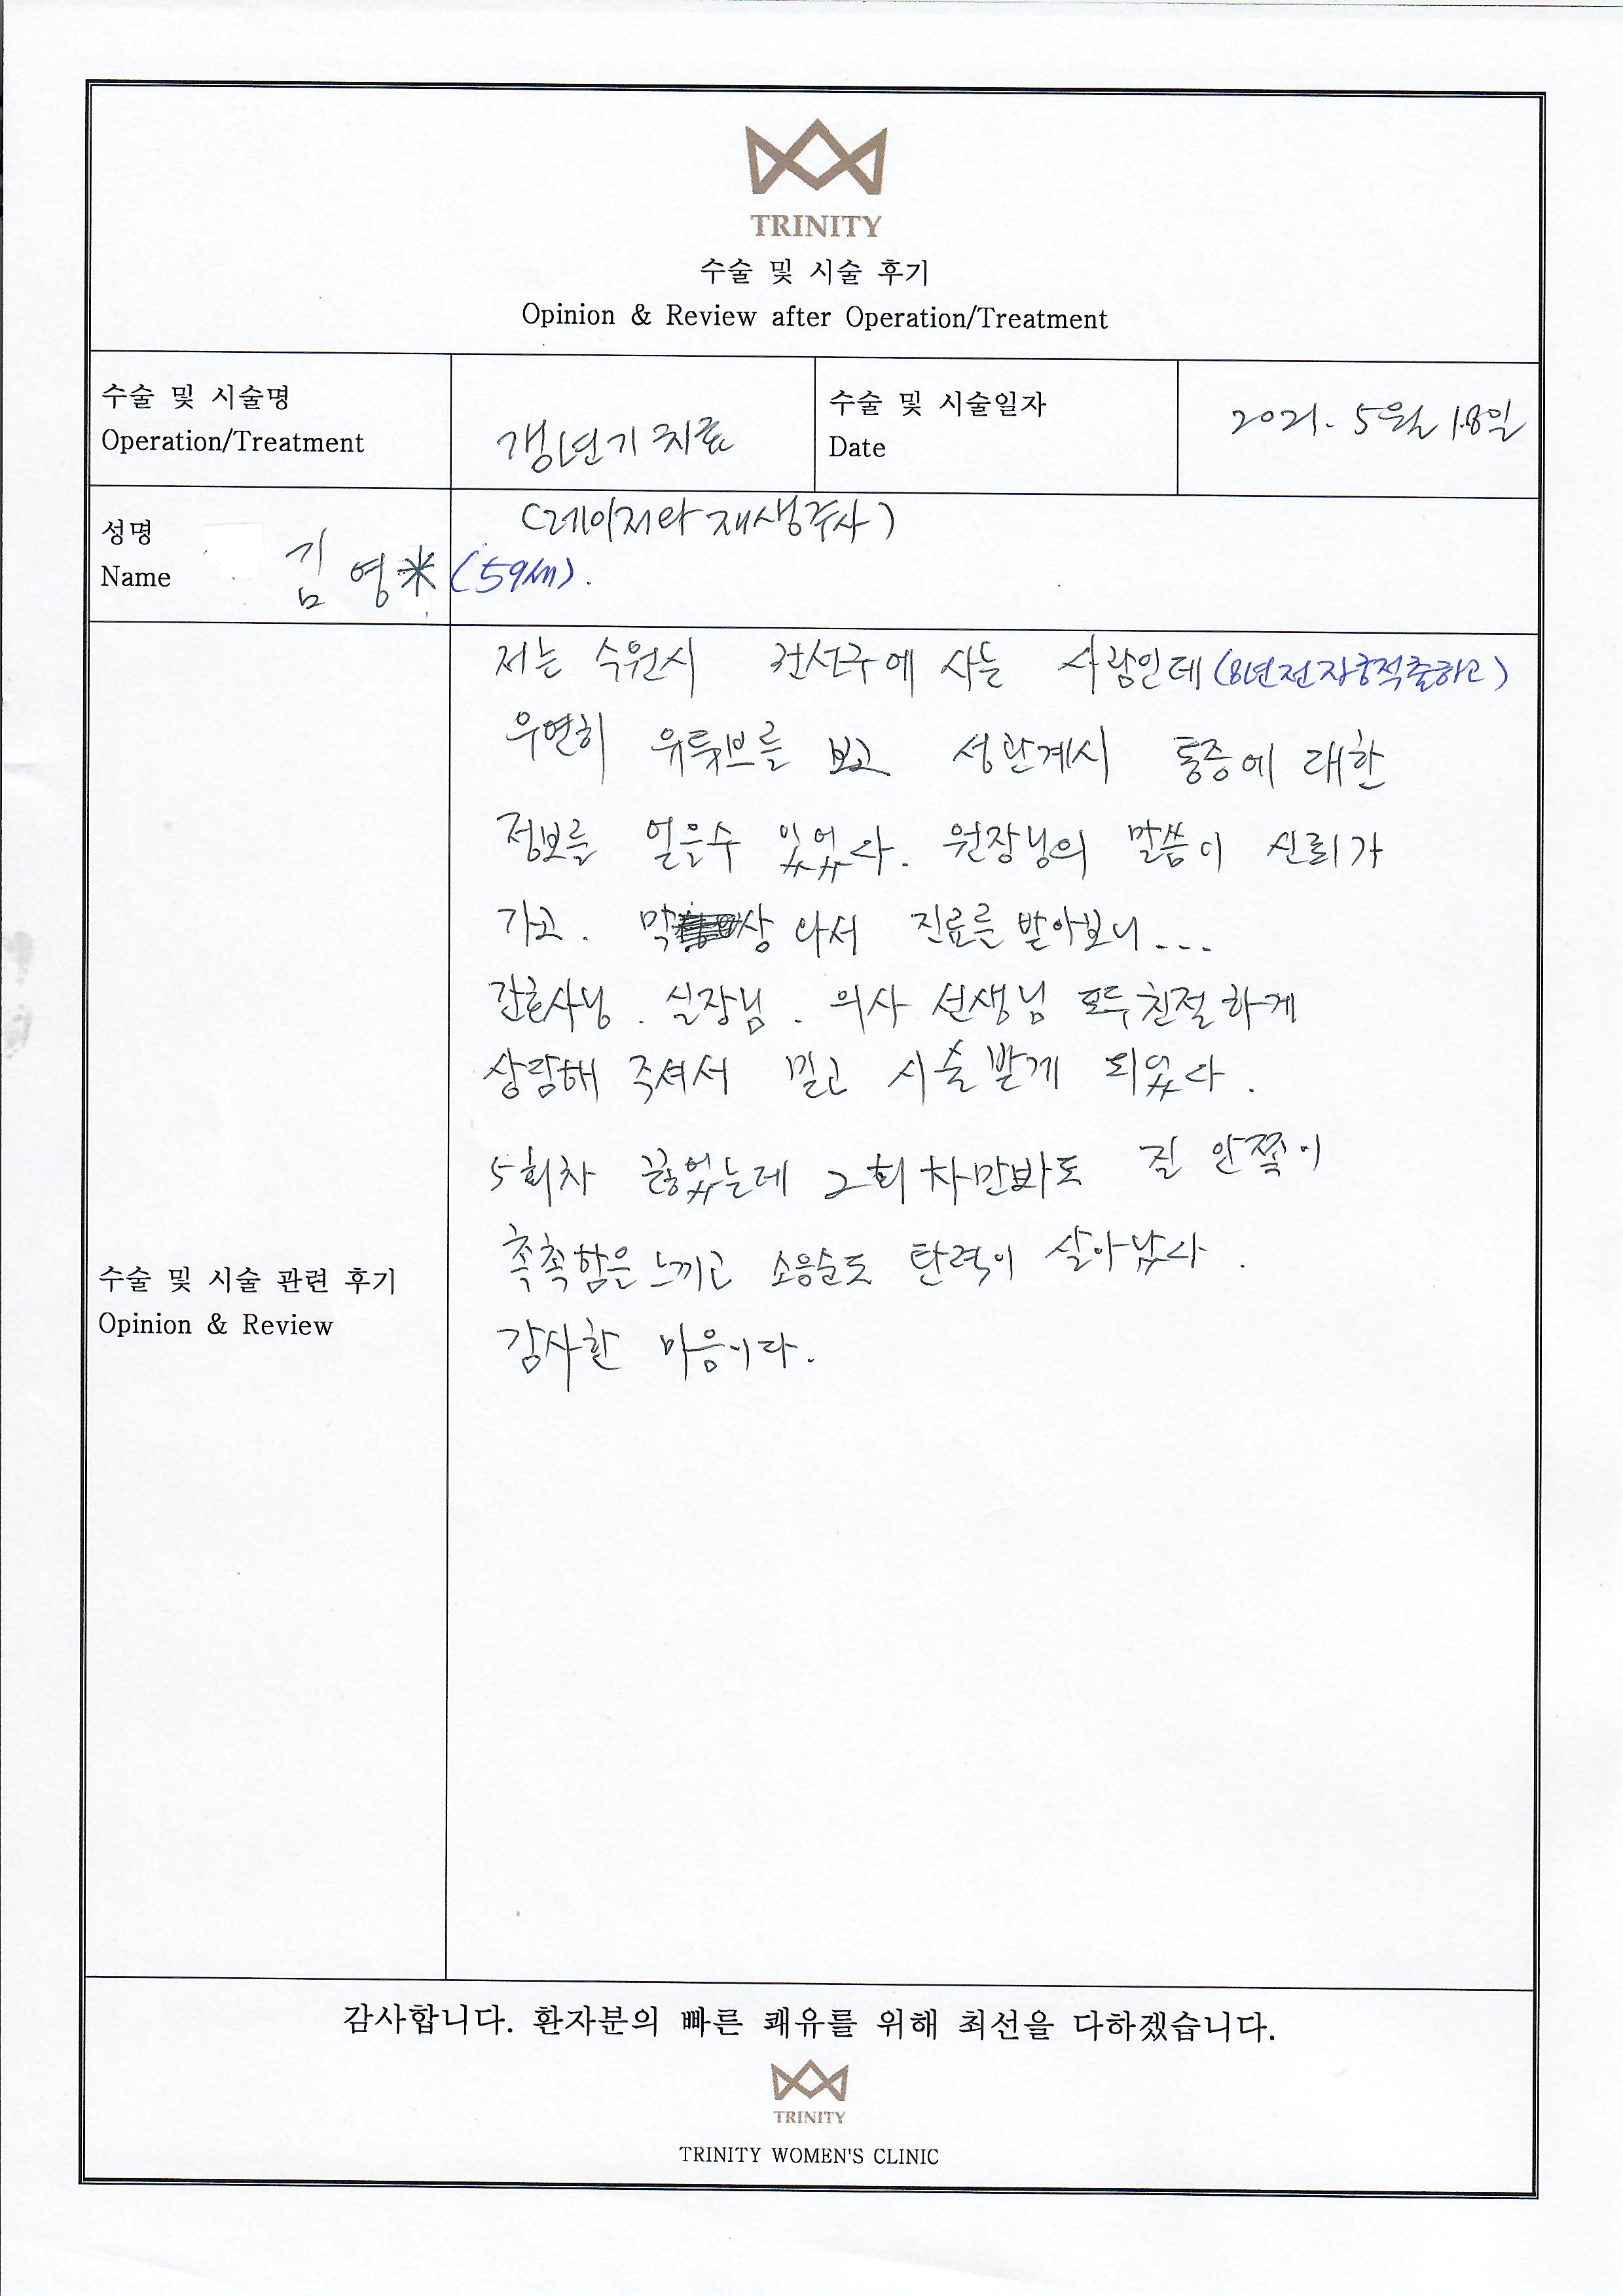 TRINITY
수술 및 시술 후기
Opinion & Review after Operation/Treatment
수술 및 시술명
Operation/Treatment
갱년기 치료
수술 및 시술일자
Date
2021. 5월 18일
성명
Name
김영* (59세).
(레이저와 재생주사)
저는 수원시 권선구에 사는 사람인데 (8년전 자궁적출하고)
우연히 유튜브를 보고 성관계시 통증에 대한
정보를 얻을수 있었다. 원장님의 말씀이 신뢰가
가고. 막상 와서 진료를 받아보니...
간호사님. 실장님. 의사 선생님 모두 친절하게
상담해 주셔서 믿고 시술받게 되었다.
5회차 끊었는데 2회차만봐도 질 안쪽이
촉촉함을 느끼고 소음순도 탄력이 살아났다.
감사한 마음이다.
수술 및 시술 관련 후기
Opinion & Review
감사합니다. 환자분의 빠른 쾌유를 위해 최선을 다하겠습니다.
TRINITY
TRINITY WOMEN'S CLINIC